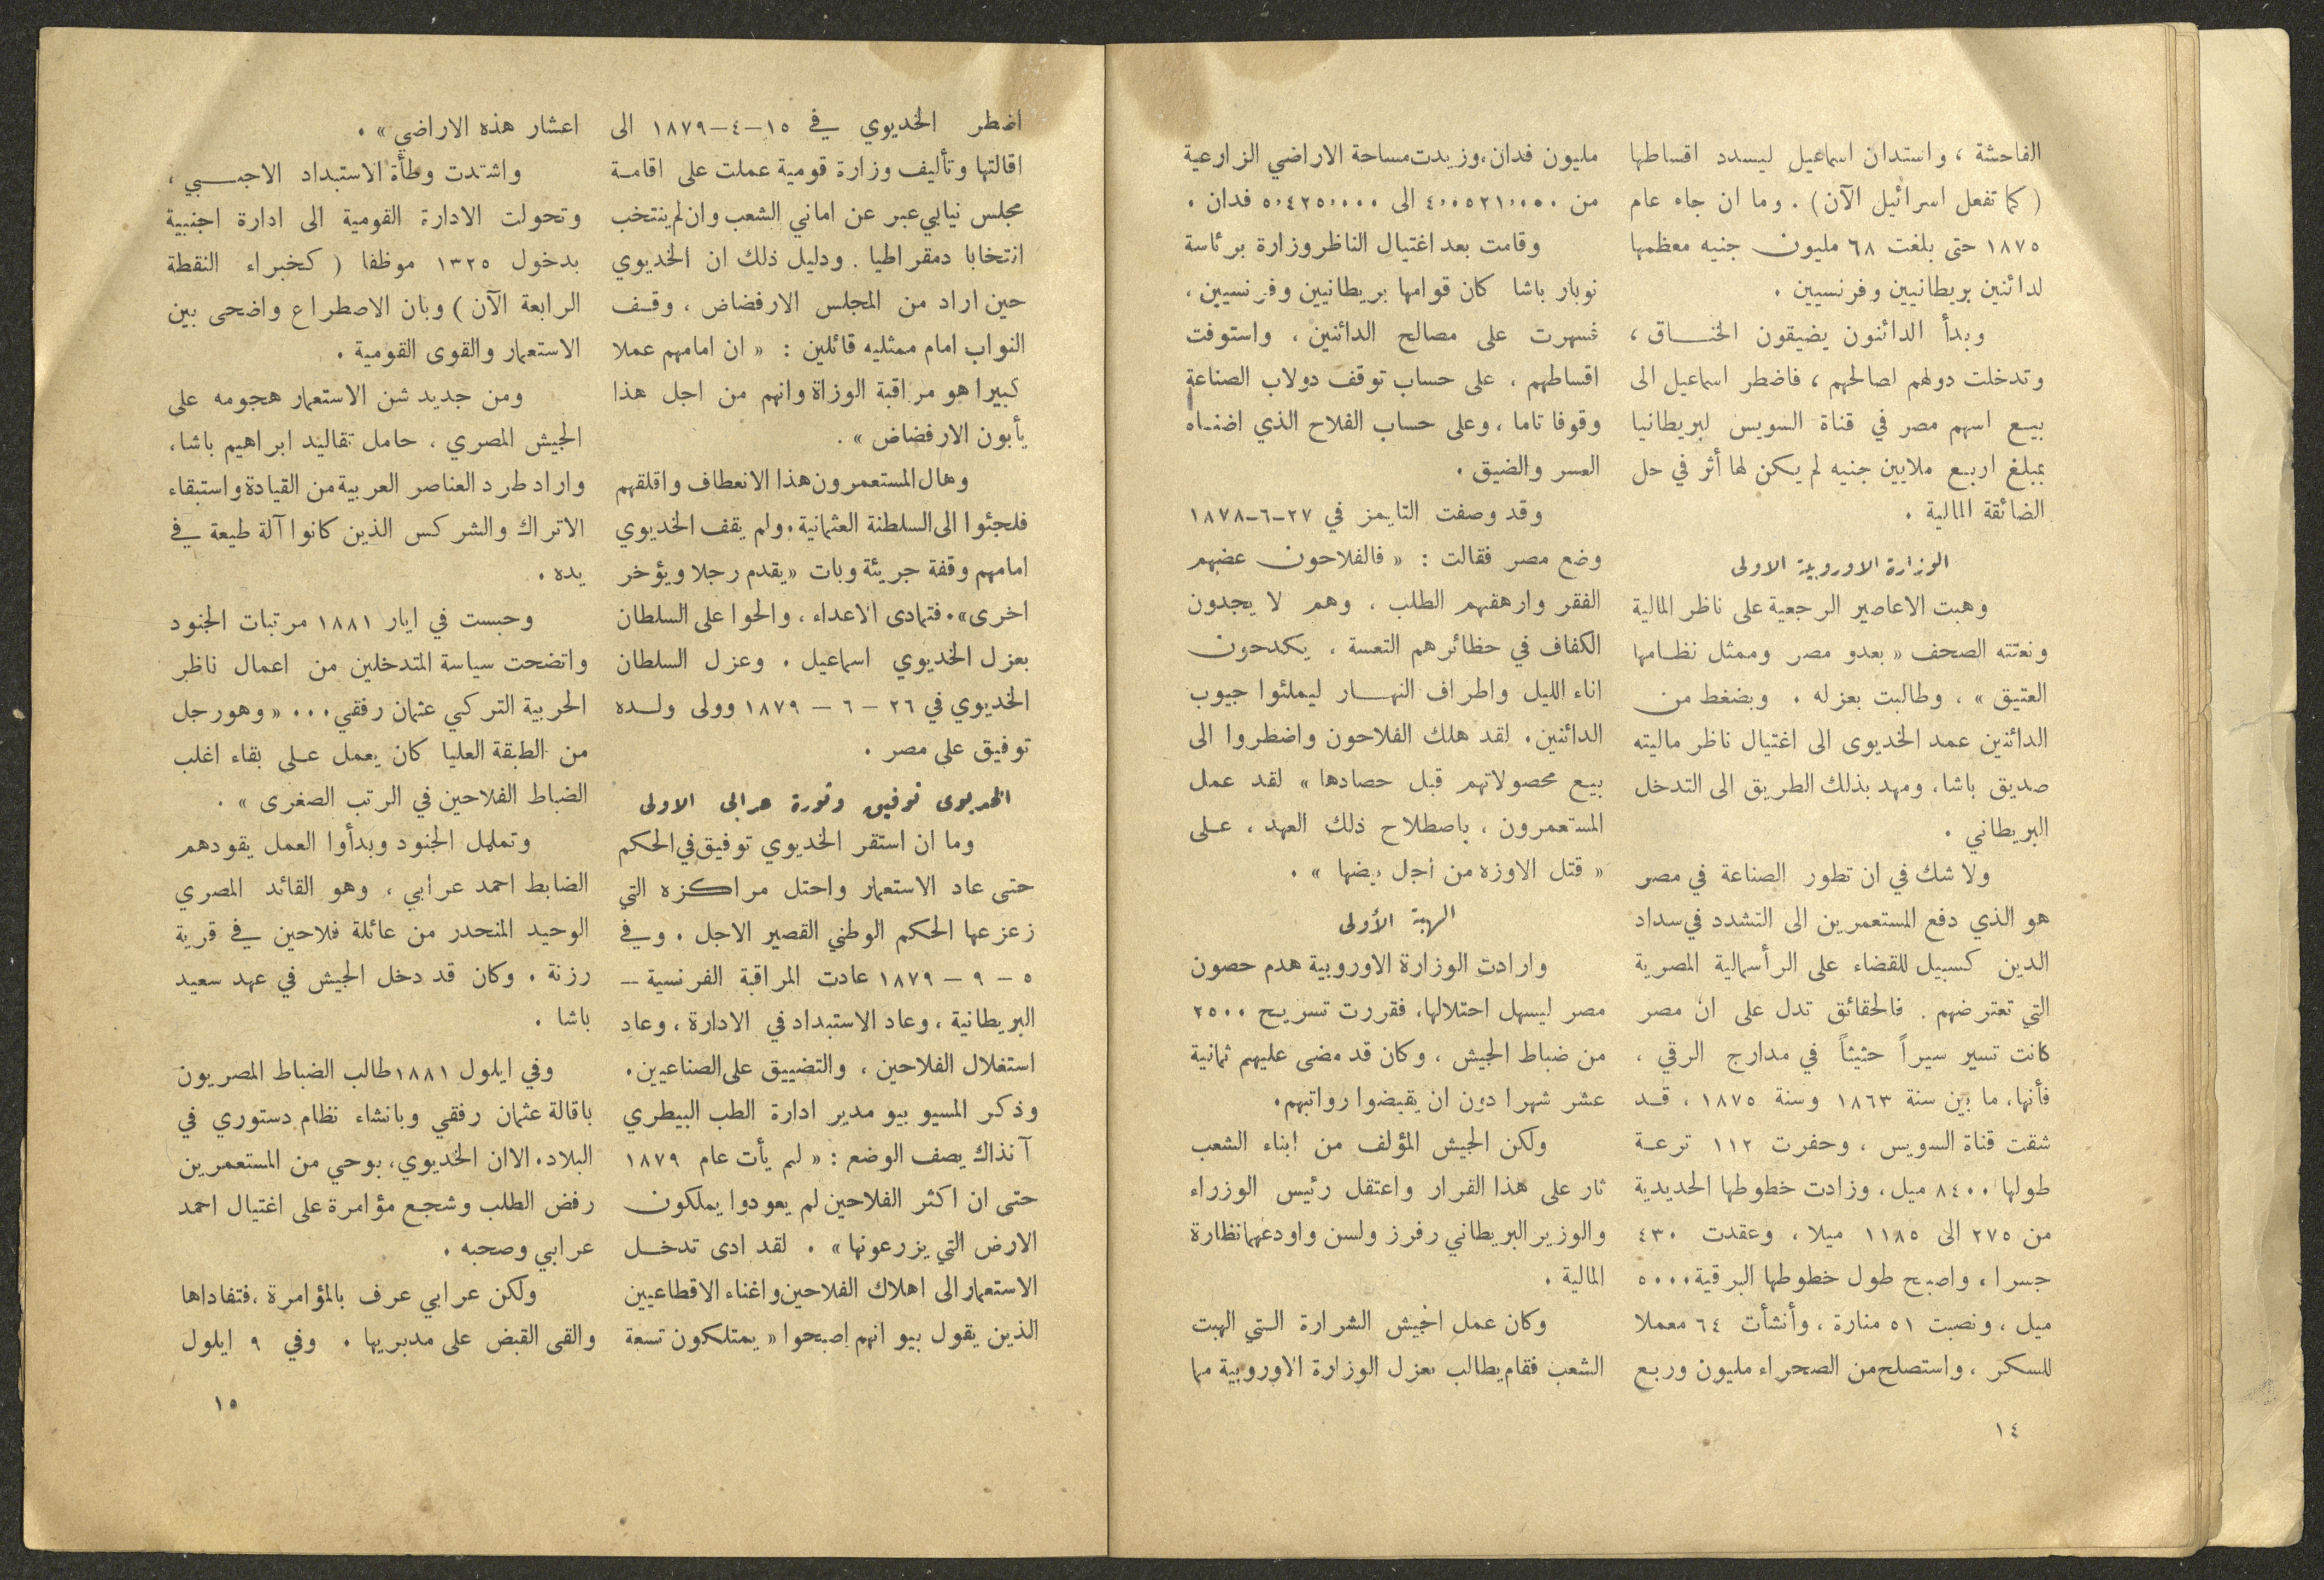 الفاحشة ، واستدان اسماعيل ليسدد اقساطها
(كما تفعل اسرائيل الآن) . وما ان جاء عام
١٨٧٥ حتى بلغت ٦٨ مليون جنيه معظمها
لدائنين بريطانيين وفرنسيين .
وبدأ الدائنون يضيقون الخناق ،
وتدخلت دولهم لصالحهم ، فاضطر اسماعيل الى
بيع اسهم مصر في قناة السويس لبريطانيا
بمبلغ اربع ملايين جنيه لم يكن لها أثر في حل
الضائقة المالية .
الوزارة الاوروبية الاولى
وهبت الاعاصير الرجعية على ناظر المالية
ونعتته الصحف « بعدو مصر وممثل نظامها
العتيق » ، وطالبت بعزله . وبضغط من
الدائنين عمد الخديوى الى اغتيال ناظر ماليته
صديق باشا، ومهد بذلك الطريق الى التدخل
البريطاني .
ولا شك في ان تطور الصناعة في مصر
هو الذي دفع المستعمرين الى التشدد في سداد
الدين كسبيل للقضاء على الرأسمالية المصرية
التي تعترضهم . فالحقائق تدل على ان مصر
كانت تسير سيراً حثيثاً في مدارج الرقي ،
فأنها، ما بين سنة ١٨٦٣ وسنة ١٨٧٥ ، قد
شقت قناة السويس ، وحفرت ١١٢ ترعة
طولها ٨٤٠٠ ميل، وزادت خطوطها الحديدية
من ٢٧٥ الى ١١٨٥ ميلا ، وعقدت ٤٣٠
جسرا ، واصبح طول خطوطها البرقية ٥٠٠٠
ميل ، ونصبت ٥١ منارة ، وأنشأت ٦٤ معملا
للسكر ، واستصلح من الصحراء مليون وربع
مليون فدان،وزيدت مساحة الاراضي الزارعية
من ٤،٠٥٢١،٠٠٠ الى ٥،٤٢٥،٠٠٠ فدان .
وقامت بعد اغتيال الناظر وزارة برئاسة
نوبار باشا كان قوامها بريطانيين وفرنسيين،
فسهرت على مصالح الدائنين ، واستوفت
اقساطهم ، على حساب توقف دولاب الصناعة
وقوفا تاما ، وعلى حساب الفلاح الذي اضناه
العسر والضيق .
وقد وصفت التايمز في ٢٧-٦-١٨٧٨
وضع مصر فقالت : « فالفلاحون عضهم
الفقر وارهقهم الطلب ، وهم لا يجدون
الكفاف في حظائرهم التعسة ، يكدحون
اناء الليل واطراف النهار ليملئوا جيوب
الدائنين. لقد هلك الفلاحون واضطروا الى
بيع محصولاتهم قبل حصادها » لقد عمل
المستعمرون ، باصطلاح ذلك العهد ، على
« قتل الاوزه من اجل بيضها » .
الهبة الأولى
وارادت الوزارة الاوروبية هدم حصون
مصر ليسهل احتلالها، فقررت تسريح ٢٥٠٠
من ضباط الجيش ، وكان قد مضى عليهم ثمانية
عشر شهرا دون ان يقبضوا رواتبهم.
ولكن الجيش المؤلف من ابناء الشعب
ثار على هذا القرار واعتقل رئيس الوزراء
والوزير البريطاني رفرز ولسن واودعهما نظارة
المالية .
وكان عمل الجيش الشرارة التي الهبت
الشعب فقام يطالب بعزل الوزارة الاوروبية مما
١٤
اضطر الخديوي في ١٥-٤-١٨٧٩ الى
اقالتها وتأليف وزارة قومية عملت على اقامة
مجلس نيابي عبر عن اماني الشعب وان لم ينتخب
انتخابا دمقراطيا . ودليل ذلك ان الخديوي
حين اراد من المجلس الارفضاض ، وقف
النواب امام ممثليه قائلين : « ان امامهم عملا
كبيرا هو مراقبة الوزاة وانهم من اجل هذا
يأبون الارفضاض » .
وهال المستعمرون هذا الانعطاف واقلقهم
فلجئوا الى السلطنة العثمانية. ولم يقف الخديوي
امامهم وقفة جريئة وبات «يقدم رجلا ويؤخر
اخرى». فتمادى الاعداء ، والحوا على السلطان
بعزل الخديوي اسماعيل . وعزل السلطان
الخديوي في ٢٦ - ٦ - ١٨٧٩ وولى ولده
توفيق على مصر .
الخديوى توفيق وثورة عرابى الاولى
وما ان استقر الخديوي توفيق في الحكم
حتى عاد الاستعمار واحتل مراكزه التي
زعزعها الحكم الوطني القصير الاجل . وفي
٥ - ٩ - ١٨٧٩ عادت المراقبة الفرنسية -
البريطانية ، وعاد الاستبداد في الادارة ، وعاد
استغلال الفلاحين ، والتضييق على الصناعيين.
وذكر المسيو بيو مدير ادارة الطب البيطري
آنذاك يصف الوضع : « لم يأت عام ١٨٧٩
حتى ان اكثر الفلاحين لم يعودوا يملكون
الارض التي يزرعونها » . لقد ادى تدخل
الاستعمار الى اهلاك الفلاحين واغناء الاقطاعيين
الذين يقول بيو انهم اصبحوا « يمتلكون تسعة
اعشار هذه الاراضي » .
واشتدت وطأة الاستبداد الاجنبي ،
وتحولت الادارة القومية الى ادارة اجنبية
بدخول ١٣٢٥ موظفا ( كخبراء النقطة
الرابعة الآن ) وبان الاصطراع واضحى بين
الاستعمار والقوى القومية .
ومن جديد شن الاستعمار هجومه على
الجيش المصري ، حامل تقاليد ابراهيم باشا،
واراد طرد العناصر العربية من القيادة واستبقاء
الاتراك والشركس الذين كانوا آلة طيعة في
يده .
وحبست في ايار ١٨٨١ مرتبات الجنود
واتضحت سياسة المتدخلين من اعمال ناظر
الحربية التركي عثمان رفقي... « وهو رجل
من الطبقة العليا كان يعمل على بقاء اغلب
الضباط الفلاحين في الرتب الصغرى » .
وتململ الجنود وبدأوا العمل يقودهم
الضابط احمد عرابي ، وهو القائد المصري
الوحيد المنحدر من عائلة فلاحين في قرية
رزنة . وكان قد دخل الجيش في عهد سعيد
باشا .
وفي ايلول ١٨٨١ طالب الضباط المصريون
باقالة عثمان رفقي وبانشاء نظام دستوري في
البلاد. الاان الخديوي، بوحي من المستعمرين
رفض الطلب وشجع مؤامرة على اغتيال احمد
عرابي وصحبه .
ولكن عرابي عرف بالمؤامرة ،فتفاداها
والقى القبض على مدبريها . وفي ٩ ايلول
١٥